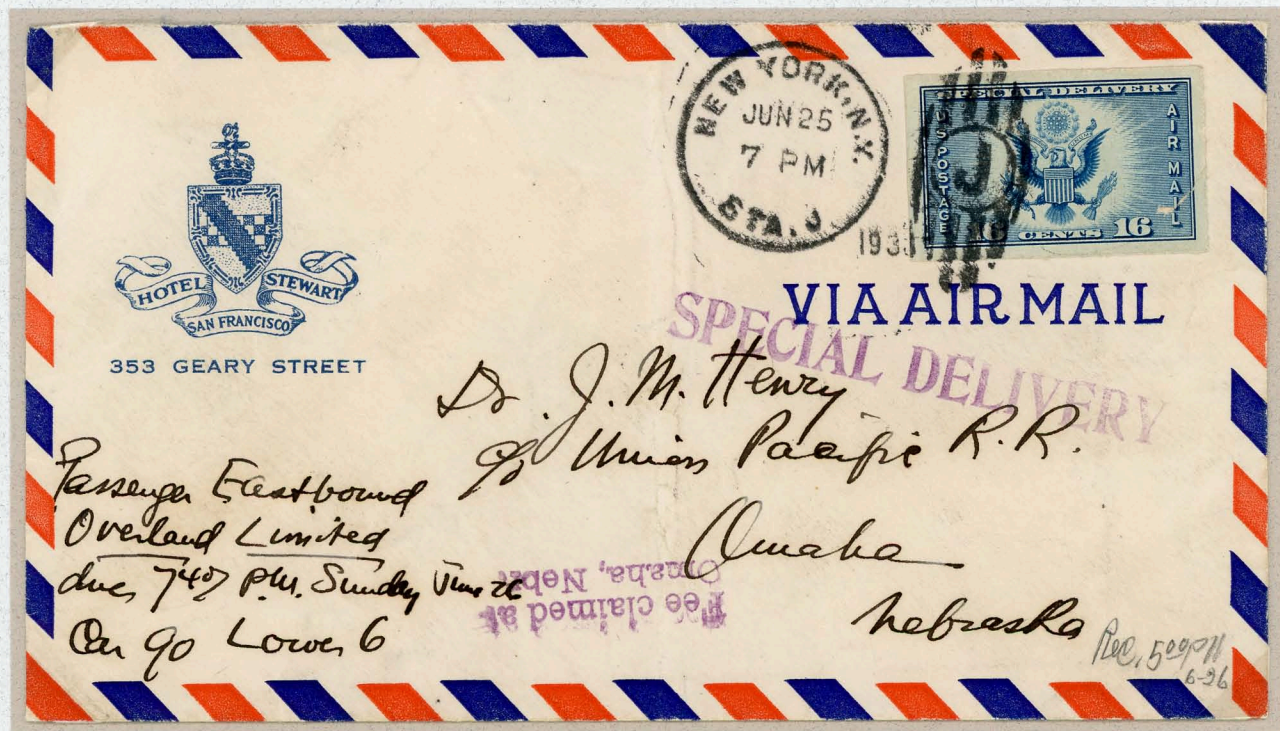 HOTEL STEWART
SAN FRANCISCO
353 GEARY STREET
NEW YORK, N.Y.
JUN 25
7 PM
STA. J
193
SPECIAL DELIVERY
U S POSTAGE
AIR MAIL
J
CENTS 16
VIA AIR MAIL
SPECIAL DELIVERY
Dr. J. M. Henry
c/o Union Pacific R. R.
Omaha
Nebraska
Passenger Eastbound
Overland Limited
due 740 P.M. Sunday June 26
Car 90 Lower 6
Fee claimed at
Omaha, Nebr.
Rec. 5 00 PM
6-26